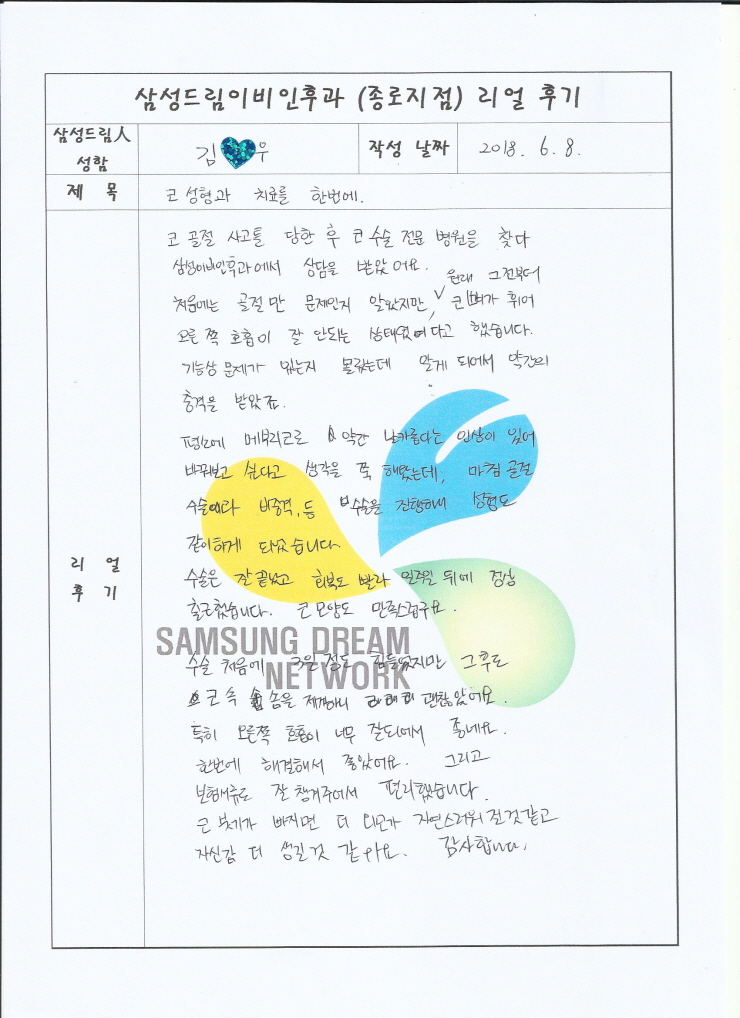 삼성드림이비인후과 (종로지점) 리얼 후기
삼성드림人 성함
김 우
작성 날짜
2018. 6. 8.
제 목
코 성형과 치료를 한번에.
리 얼 후 기
코 골절 사고를 당한 후 코 수술 전문 병원을 찾다
삼성이비인후과에서 상담을 받았어요.
원래 그전부터
처음에는 골절만 문제인지 알았지만, 코뼈가 휘어
오른 쪽 호흡이 잘 안되는 상태였다고 했습니다.
기능상 문제가 있는지 몰랐는데 알게 되어서 약간의
충격을 받았죠.
평소에 메부리코로 약간 날카롭다는 인상이 있어
바꿔보고 싶다고 생각을 쭉 해왔는데, 마침 골절
수술이라 비중격, 등 수술을 진행하며 성형도
같이하게 되었습니다.
수술은 잘 끝났고 회복도 빨라 일주일 뒤에 정상
출근했습니다. 코 모양도 만족스럽구요.
SAMSUNG DREAM
NETWORK
수술 처음에 3일 정도 힘들었지만 그후로
코 속 솜을 제거하니 괜찮았어요.
특히 오른쪽 호흡이 너무 잘되어서 좋네요.
한번에 해결해서 좋았어요. 그리고
보험서류도 잘 챙겨주어서 편리했습니다.
큰 붓기가 빠지면 더 외모가 자연스러워 질것같고
자신감 더 생길것 같아요. 감사합니다.